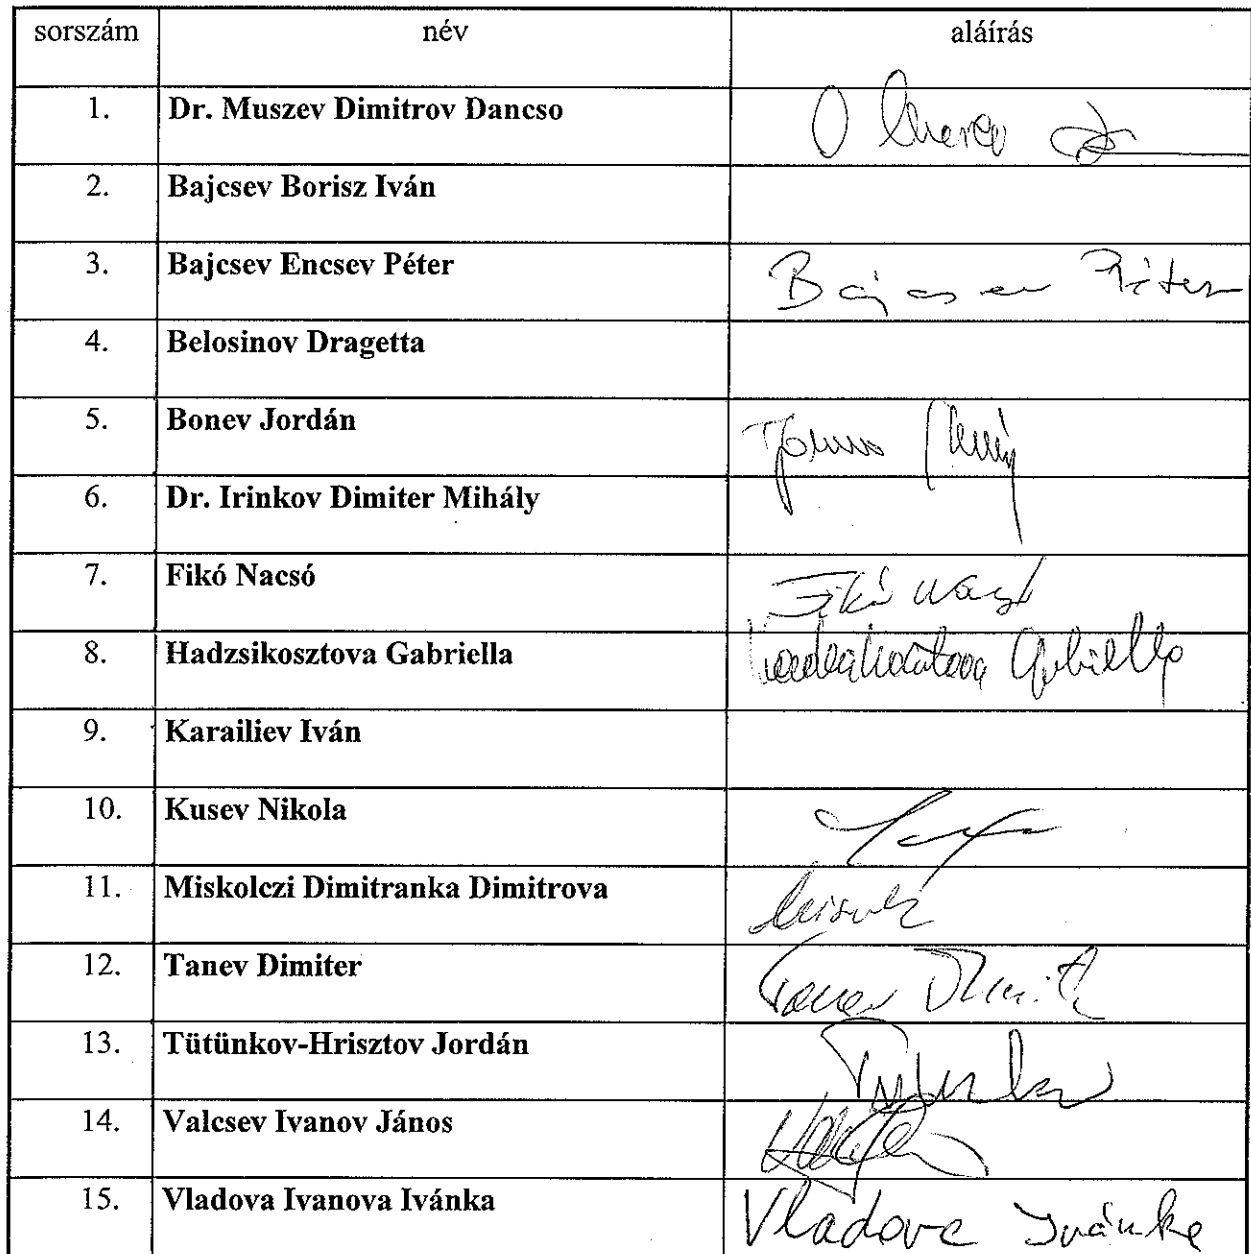 sorszám név aláírás
1. Dr. Muszev Dimitrov Dancso
2. Bajcsev Borisz Iván
3. Bajcsev Encsev Péter Bajcsev Péter
4. Belosinov Dragetta
5. Bonev Jordán
6. Dr. Irinkov Dimiter Mihály
7. Fikó Nacsó
8. Hadzsikosztova Gabriella Hadzsikosztova Gabriella
9. Karailiev Iván
10. Kusev Nikola
11. Miskolczi Dimitranka Dimitrova
12. Tanev Dimiter
13. Tütünkov-Hrisztov Jordán
14. Valcsev Ivanov János
15. Vladova Ivanova Ivánka Vladova Ivánka